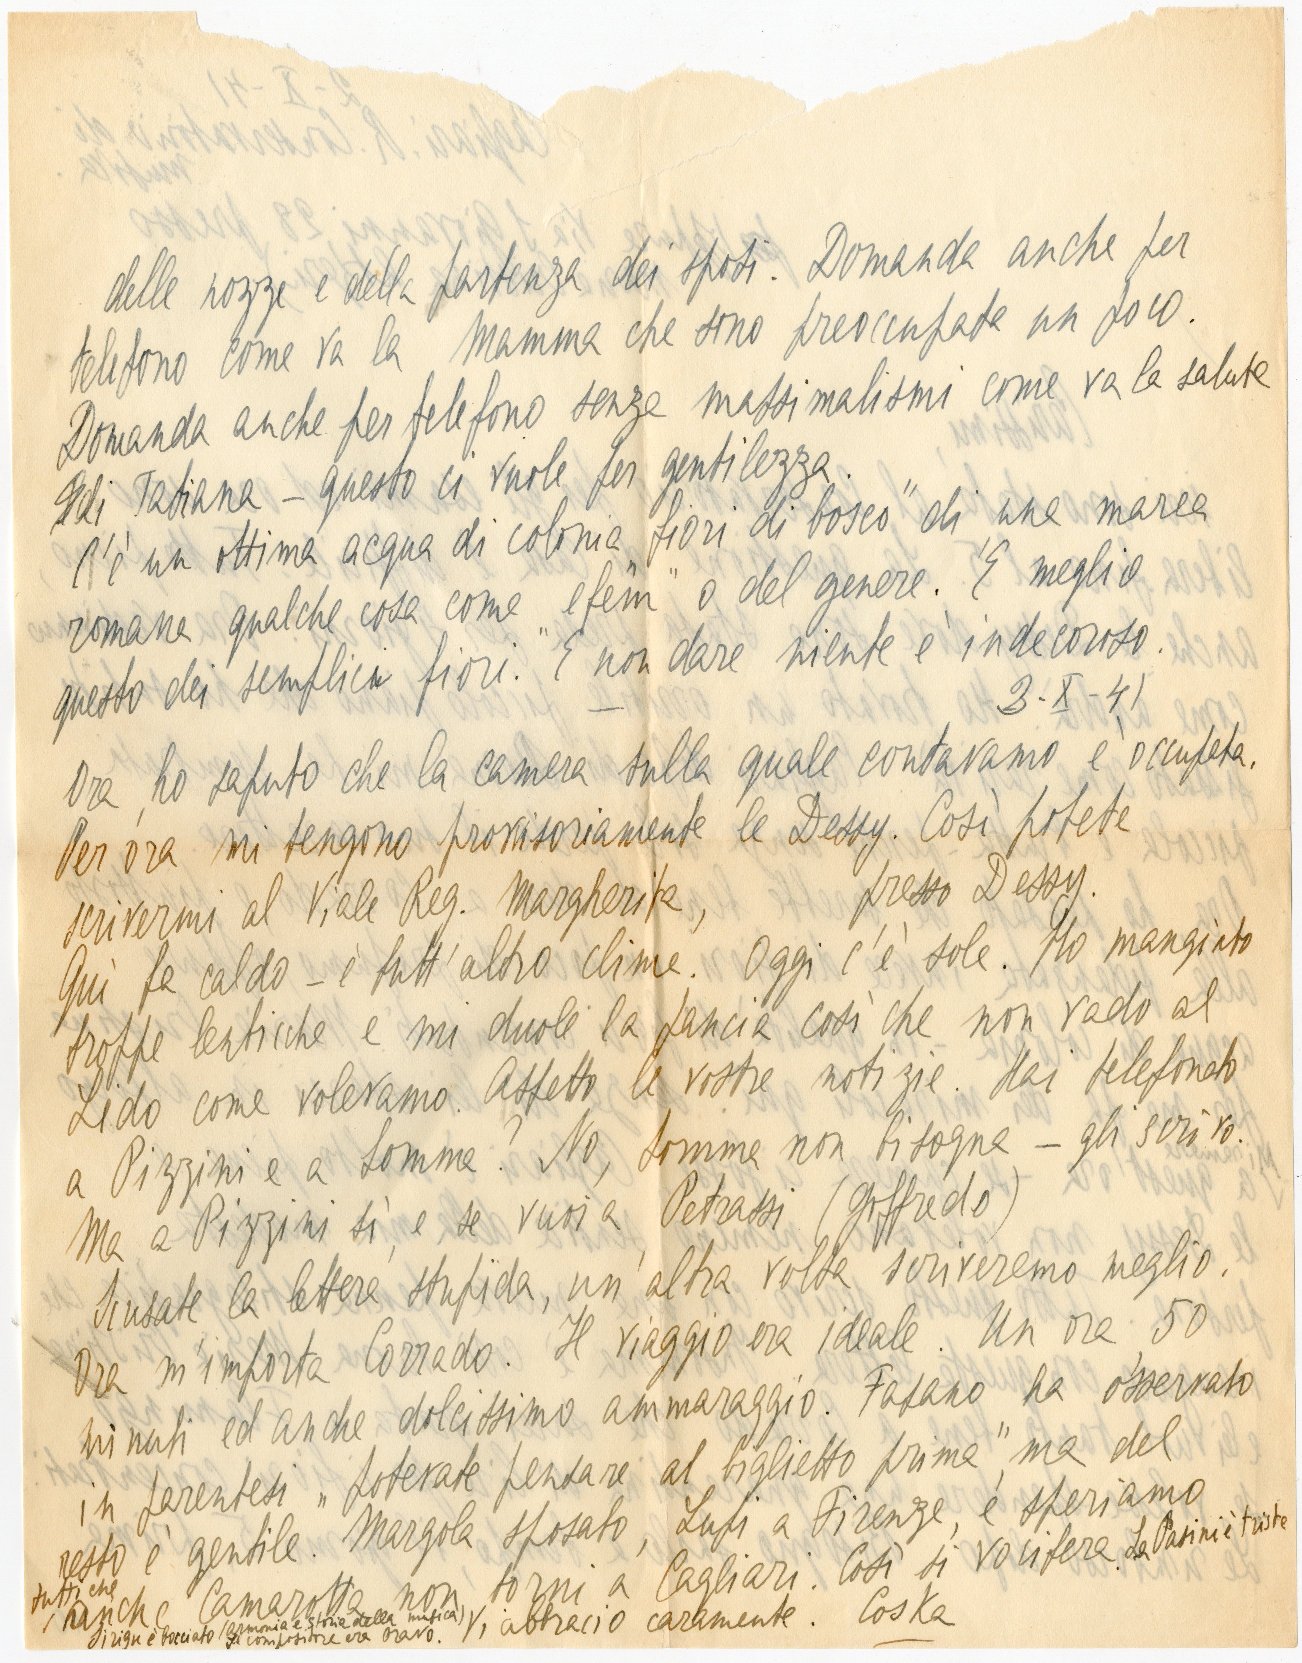 delle nozze e della partenza dei sposi. Domanda anche per
telefono come va la Mamma che sono preoccupata un poco.
Domanda anche per telefono senza massimalismi come va la salute
di Tatiana – questo ci vuole per gentilezza.
C'è un ottima acqua di colonia „fiori di bosco" di una marca
romana qualche cosa come „efem" o del genere. È meglio
questo dei semplici fiori. E non dare niente è indecoroso.
3-X-41
Ora ho saputo che la camera sulla quale contavamo è occupata.
Per ora mi tengono provvisoriamente le Dessy. Così potete
scrivermi al Viale Reg. Margherita, presso Dessy.
Quì fa caldo – è tutt'altro clima. Oggi c'è sole. Ho mangiato
troppe lenticche e mi duole la pancia così che non vado al
Lido come volevamo. Aspetto le vostre notizie. Hai telefonato
a Pizzini e a Somma? No, Somma non bisogna – gli scrivo.
Ma a Pizzini sì, e se vuoi a Petrassi (Goffredo)
Scusate la lettera stupida, un'altra volta scriveremo meglio.
Ora m'importa Corrado. Il viaggio era ideale. Un ora, 50
minuti ed anche dolcissimo ammaraggio. Fasano ha osservato
in parentesi „potevate pensare al biglietto prima", ma del
resto è gentile. Margola sposato, Lupi a Firenze, e speriamo
che Camarotta non torni a Cagliari. Così si vocifera. La Pasini è triste
tutti
è bocciato (armonia e storia della musica)
Di compositore era bravo. Vi abbracio caramente. Coska